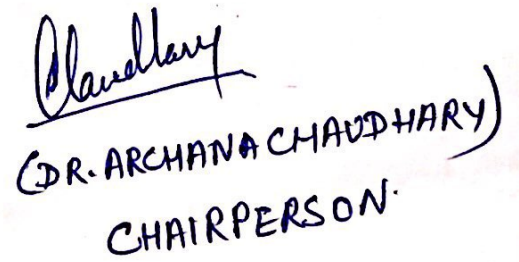 Chaudhary
(DR. ARCHANA CHAUDHARY)
CHAIRPERSON.